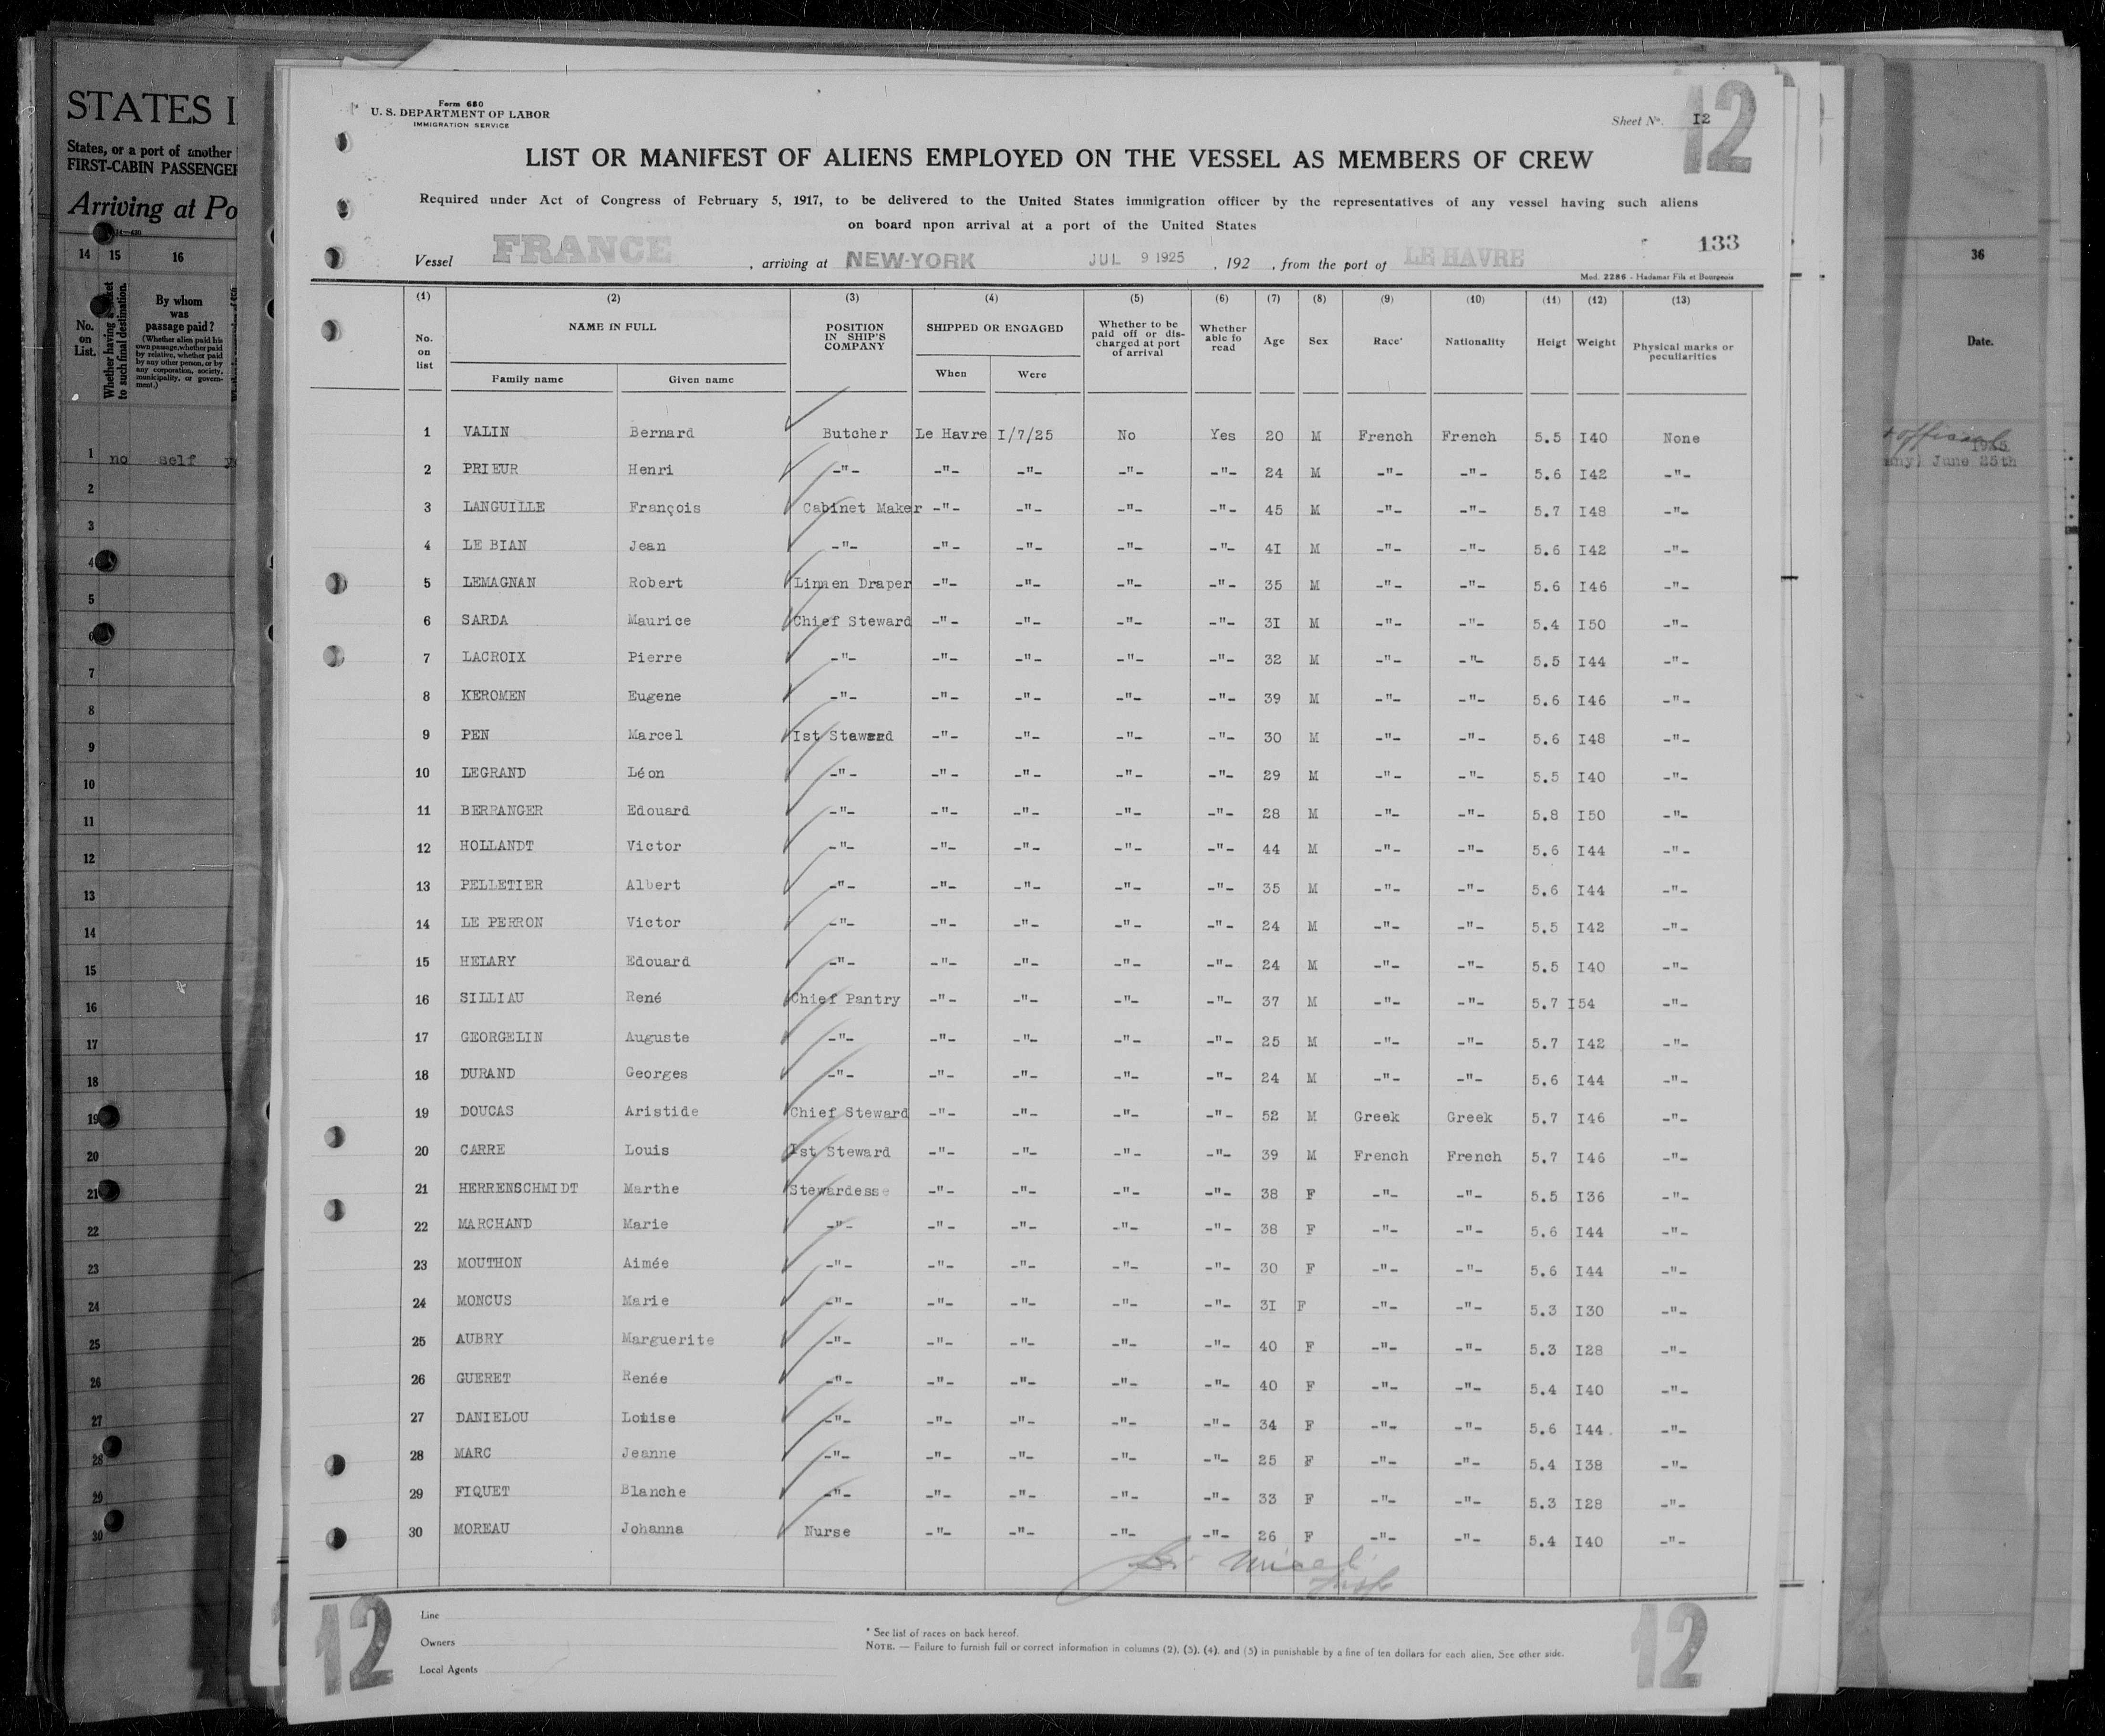 STATES I
States, or a port of another
FIRST-CABIN PASSENGER
Arriving at Po
14 15 16
No. on List.
Whether having a ticket to such final destination.
By whom was passage paid?
(Whether alien paid his own passage, whether paid by relative, whether paid by any other person, or by any corporation, society, municipality, or government.)
1 no self
2
3
4
5
6
7
8
9
10
11
12
13
14
15
16
17
18
19
20
21
22
23
24
25
26
27
28
29
30
Form 680
U. S. DEPARTMENT OF LABOR
IMMIGRATION SERVICE
Sheet No. I2
12
LIST OR MANIFEST OF ALIENS EMPLOYED ON THE VESSEL AS MEMBERS OF CREW
Required under Act of Congress of February 5, 1917, to be delivered to the United States immigration officer by the representatives of any vessel having such aliens
on board npon arrival at a port of the United States
133
Vessel FRANCE , arriving at NEW-YORK JUL 9 1925 , 192 , from the port of LE HAVRE
Mod. 2286 - Hadamar Fils et Bourgeois
(1) (2) (3) (4) (5) (6) (7) (8) (9) (10) (11) (12) (13)
No. on list
NAME IN FULL
Family name Given name
POSITION IN SHIP'S COMPANY
SHIPPED OR ENGAGED
When Were
Whether to be paid off or discharged at port of arrival
Whether able to read
Age Sex Race* Nationality Heigt Weight Physical marks or peculiarities
1 VALIN Bernard Butcher Le Havre I/7/25 No Yes 20 M French French 5.5 I40 None
2 PRIEUR Henri -"- -"- -"- -"- -"- 24 M -"- -"- 5.6 I42 -"-
3 LANGUILLE François Cabinet Maker -"- -"- -"- -"- 45 M -"- -"- 5.7 I48 -"-
4 LE BIAN Jean -"- -"- -"- -"- -"- 4I M -"- -"- 5.6 I42 -"-
5 LEMAGNAN Robert Linnen Draper -"- -"- -"- -"- 35 M -"- -"- 5.6 I46 -"-
6 SARDA Maurice Chief Steward -"- -"- -"- -"- 3I M -"- -"- 5.4 I50 -"-
7 LACROIX Pierre -"- -"- -"- -"- -"- 32 M -"- -"- 5.5 I44 -"-
8 KEROMEN Eugene -"- -"- -"- -"- -"- 39 M -"- -"- 5.6 I46 -"-
9 PEN Marcel Ist Steward -"- -"- -"- -"- 30 M -"- -"- 5.6 I48 -"-
10 LEGRAND Léon -"- -"- -"- -"- -"- 29 M -"- -"- 5.5 I40 -"-
11 BERRANGER Edouard -"- -"- -"- -"- -"- 28 M -"- -"- 5.8 I50 -"-
12 HOLLANDT Victor -"- -"- -"- -"- -"- 44 M -"- -"- 5.6 I44 -"-
13 PELLETIER Albert -"- -"- -"- -"- -"- 35 M -"- -"- 5.6 I44 -"-
14 LE PERRON Victor -"- -"- -"- -"- -"- 24 M -"- -"- 5.5 I42 -"-
15 HELARY Edouard -"- -"- -"- -"- -"- 24 M -"- -"- 5.5 I40 -"-
16 SILLIAU René Chief Pantry -"- -"- -"- -"- 37 M -"- -"- 5.7 I54 -"-
17 GEORGELIN Auguste -"- -"- -"- -"- -"- 25 M -"- -"- 5.7 I42 -"-
18 DURAND Georges -"- -"- -"- -"- -"- 24 M -"- -"- 5.6 I44 -"-
19 DOUCAS Aristide Chief Steward -"- -"- -"- -"- 52 M Greek Greek 5.7 I46 -"-
20 CARRE Louis Ist Steward -"- -"- -"- -"- 39 M French French 5.7 I46 -"-
21 HERRENSCHMIDT Marthe Stewardesse -"- -"- -"- -"- 38 F -"- -"- 5.5 I36 -"-
22 MARCHAND Marie -"- -"- -"- -"- -"- 38 F -"- -"- 5.6 I44 -"-
23 MOUTHON Aimée -"- -"- -"- -"- -"- 30 F -"- -"- 5.6 I44 -"-
24 MONCUS Marie -"- -"- -"- -"- -"- 3I F -"- -"- 5.3 I30 -"-
25 AUBRY Marguerite -"- -"- -"- -"- -"- 40 F -"- -"- 5.3 I28 -"-
26 GUERET Renée -"- -"- -"- -"- -"- 40 F -"- -"- 5.4 I40 -"-
27 DANIELOU Louise -"- -"- -"- -"- -"- 34 F -"- -"- 5.6 I44 -"-
28 MARC Jeanne -"- -"- -"- -"- -"- 25 F -"- -"- 5.4 I38 -"-
29 FIQUET Blanche -"- -"- -"- -"- -"- 33 F -"- -"- 5.3 I28 -"-
30 MOREAU Johanna Nurse -"- -"- -"- -"- 26 F -"- -"- 5.4 I40 -"-
12
Line
Owners
Local Agents
* See list of races on back hereof.
NOTE. — Failure to furnish full or correct information in columns (2), (3), (4), and (5) in punishable by a fine of ten dollars for each alien, See other side.
12
36
Date.
official
1925
any) June 25th